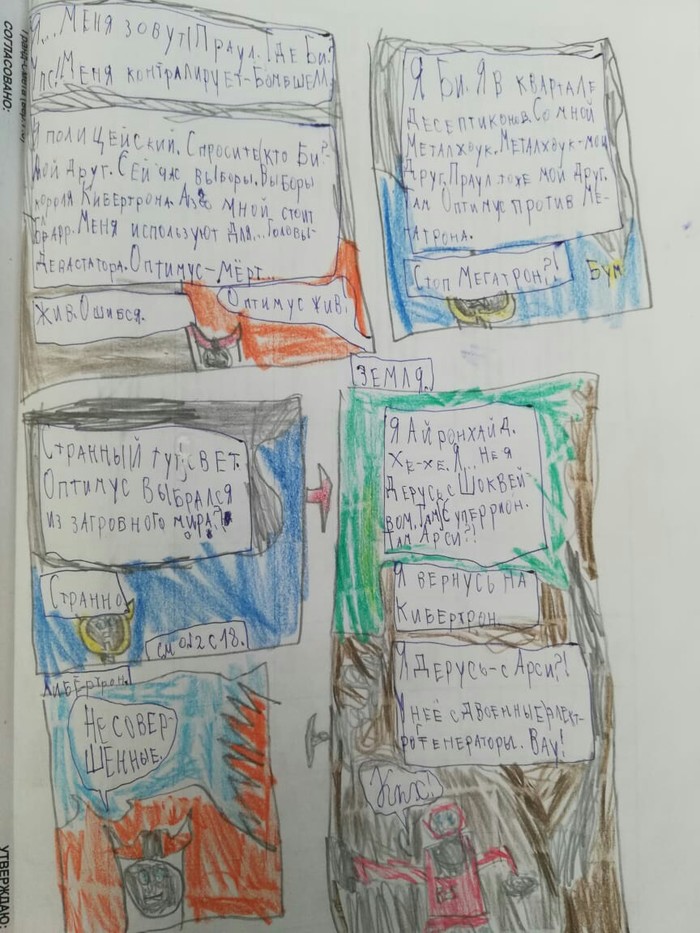 Я...Меня зовут Праул. Где Би?
Упс! Меня контралирует-Бомбшелл.
Я полицейский. Спросите кто Би?-
мой друг. Сейчас выборы. Выборы
короля Кибертрона. А со мной стоит
Меня используют для...Головы-
Девастатора. Оптимус-мёрт...
Жив. Ошибся.
Оптимус жив!
Я Би. Я в квартале
десептиконов. Со мной
Металхоук. Металхоук-мой
друг. Праул тоже мой друг.
Там Оптимус против Ме-
гатрона.
Стоп Мегатрон?!
Бум
Странный тут свет.
Оптимус выбрался
из загровного мира?
Странно.
см о№2 с 18.
ЗЕМЛЯ.
Я Айронхайд.
Хе-хе. Я... Не я
дерусь с Шоквей-
вом. Там Суперрион.
Там Арси?!
Я вернусь на
Кибертрон.
Я дерусь-с Арси?!
У неё сдвоенные элект-
рогенераторы. Вау!
Кибертрон.
Не совер-
шенные.
СОГЛАСОВАНО:
УТВЕРЖДАЮ: